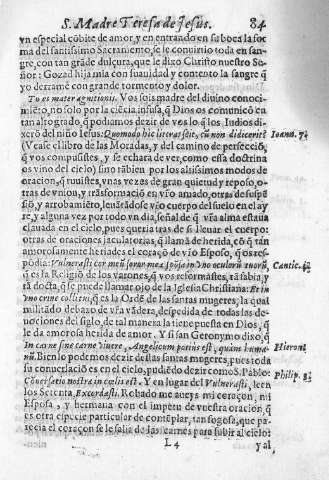 S. Madre Teresa de Iesus. 84
vn especial cõbite de amor, y en entrando en su boca la for
ma del santissimo Sacramento, se le conuirtio toda en san-
gre, con tan grãde dulçura, que le dixo Christo nuestro Se
ñor: Gozad hija mia con suauidad y contento la sangre q̃
yo derramè con grande tormento y dolor.
Tu es mater agnitionis. Vos sois madre del diuino conoci-
miẽto, no solo por la ciẽcia infusa, q̃ Dios os comunicò en
tan alto grado, q̃ podiamos dezir de vos lo q̃ los Iudios di-
xerõ del niño Iesus: Quomodo hic litteras scit, cũ non didicerit? Ioann. 7.
(Vease el libro de las Moradas, y del camino de perfeciõ,
q̃ vos compusistes, y se echara de ver, como essa doctrina
os vino del cielo) sino tãbien por los altissimos modos de
oracion, q̃ tuuistes, vnas vezes de gran quietud y reposo, o-
tras de vnion, y trãsformaciõ en vr̃o amado, otras de suspẽ
siõ, y arrobamiẽto, leuãtãdose vr̃o cuerpo del suelo en el ay
re, y alguna vez por todo vn dia, señal de q̃ vr̃a alma estaua
clauada en el cielo, pues queria tras de si lleuar el cuerpo:
otras de oraciones jaculatorias, q̃ llamã de herida, cõ q̃ tan
amorosamente heriades el coraçõ de vr̃o Esposo, q̃ os res-
põdia: Vulnerasti cor meũ soror mea sponsa in vno oculorũ tuorũ, Cantic. 4.
q̃ es la Religiõ de los varones, q̃ vos reformastes, tã sabia, y
tã docta, q̃ se puede llamar ojo de la Iglesia Christiana: Et in
vno crine colli tui, q̃ es la Ordẽ de las santas mugeres, la qual
militãdo debaxo de vr̃a vãdera, despedida de todas las de-
uociones del siglo, de tal manera la tiene puesta en Dios, q̃
le da amorosa herida de amor. Y si san Geronymo dixo, q̃
In carne sine carne viuere, Angelicum potius est, quàm huma- Hieron.
nũ. Bien lo podemos dezir destas santas mugeres, pues toda
su conuersaciõ es en el cielo, pudiẽdo dezir como S. Pablo:
Cõuersatio nostra in cœlis est. Y en lugar del Vulnerasti, leen Philip. 3.
los Setenta, Excordasti. Robado me aueys mi coraçon, mi
Esposa, y hermana con el impetu de vuestra oracion, q̃
es otra especie particular de contẽplar, tan fogosa, que pa-
recia el coraçon se le salia de las carnes para subir al cielo:
L 4 y al